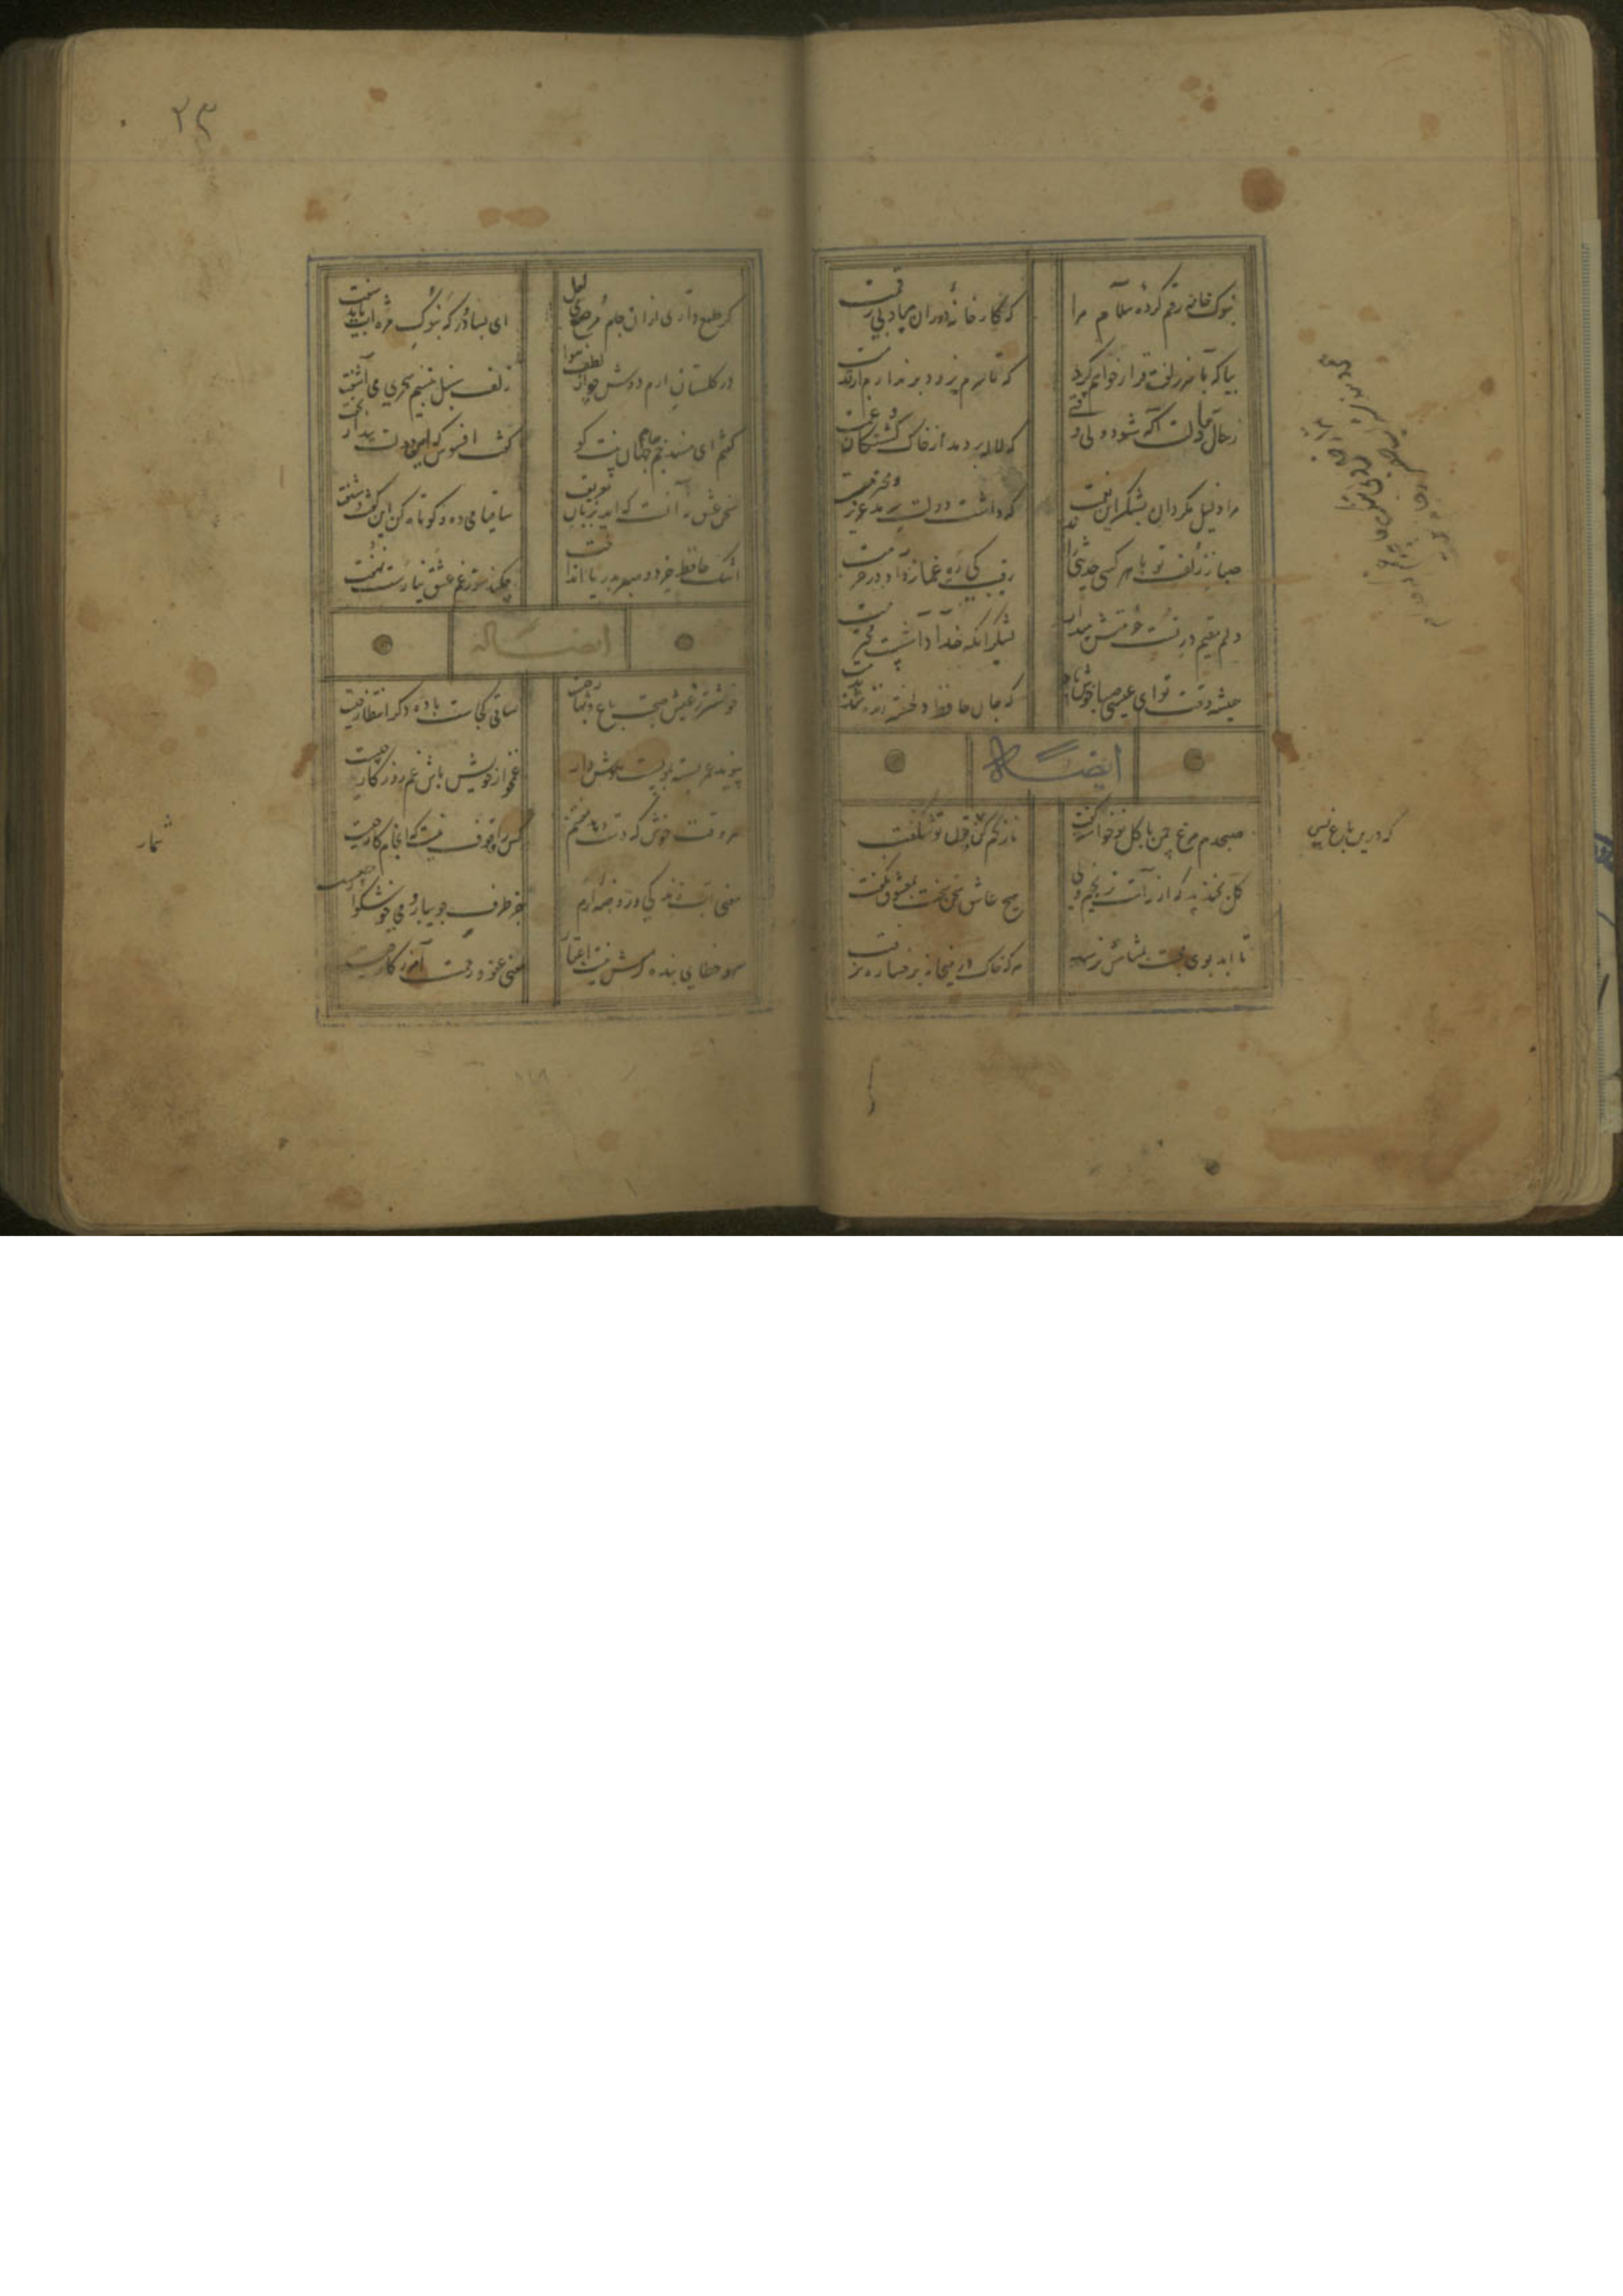 بنوک خامه رقم کرده سلام مرا
که کارخانه دوران مباد بی رقمت
بیا که با سر زلفت قرار خواهم کرد
که تا سرم برود برندارم از قدمت
ز حال ما دلت آگه شود ولی وقتی
که لاله بردمد از خاک کشتکان غمت
مرا ذلیل مکردان بشکر این نعمت
که داشت دولت سرمد عزیز و محترمت
صبا ز زلف تو با هر کلی حدیثی راند
رقیب کی ره غماز داد در حرمت
دلم مقیم در تست حرمتش میدار
بشکر آنکه خدا داشتست محترمت
همیشه وقت تو ای عیسی صبا خوش باد
که جان حافظ دلخسته زنده شد بدمت
ایضا له
صبحدم مرغ چمن با کل نوخاسته کفت
ناز کم کن که درین باغ بسی چون تو شکفت
کل بخندید که از راست نرنجیم ولی
هیچ عاشق سخن سخت بمعشوق نکفت
تا ابد بوی محبت بمشامش نرسد
هر که خاک در میخانه برخساره نرفت
که درین باغ بسی
۲۳
کر طمع داری از آن جام مرصع می لعل
ای بسا در که بنوک مژه ات باید سفت
در کلستان ارم دوش چو از لطف هوا
زلف سنبل بنسیم سحری می آشفت
کفتم ای مسند جم جام جهان بینت کو
کفت افسوس که این دولت بیدار بخفت
سخن عشق نه آنست که آید بزبان
ساقیا می ده و کوتاه کن این کفت و شنفت
اشک حافظ خرد و صبر بدریا انداخت
چکند سوز غم عشق نیارست نهفت
ایضا له
خوشتر ز عیش و صحبت باغ و بهار چیست
ساقی کجاست باده دکر انتظار چیست
پیوند عمر بسته بموییست هوش دار
غمخوار خویش باش غم روزکار چیست
هر وقت خوش که دست دهد مغتنم شمار
کس را وقوف نیست که انجام کار چیست
معنی آب زندکی و روضه ارم
جز طرف جویبار و می خوشکوار چیست
سهو و خطای بنده کرش نیست اعتبار
معنی عفو و رحمت آمرزکار چیست
شمار